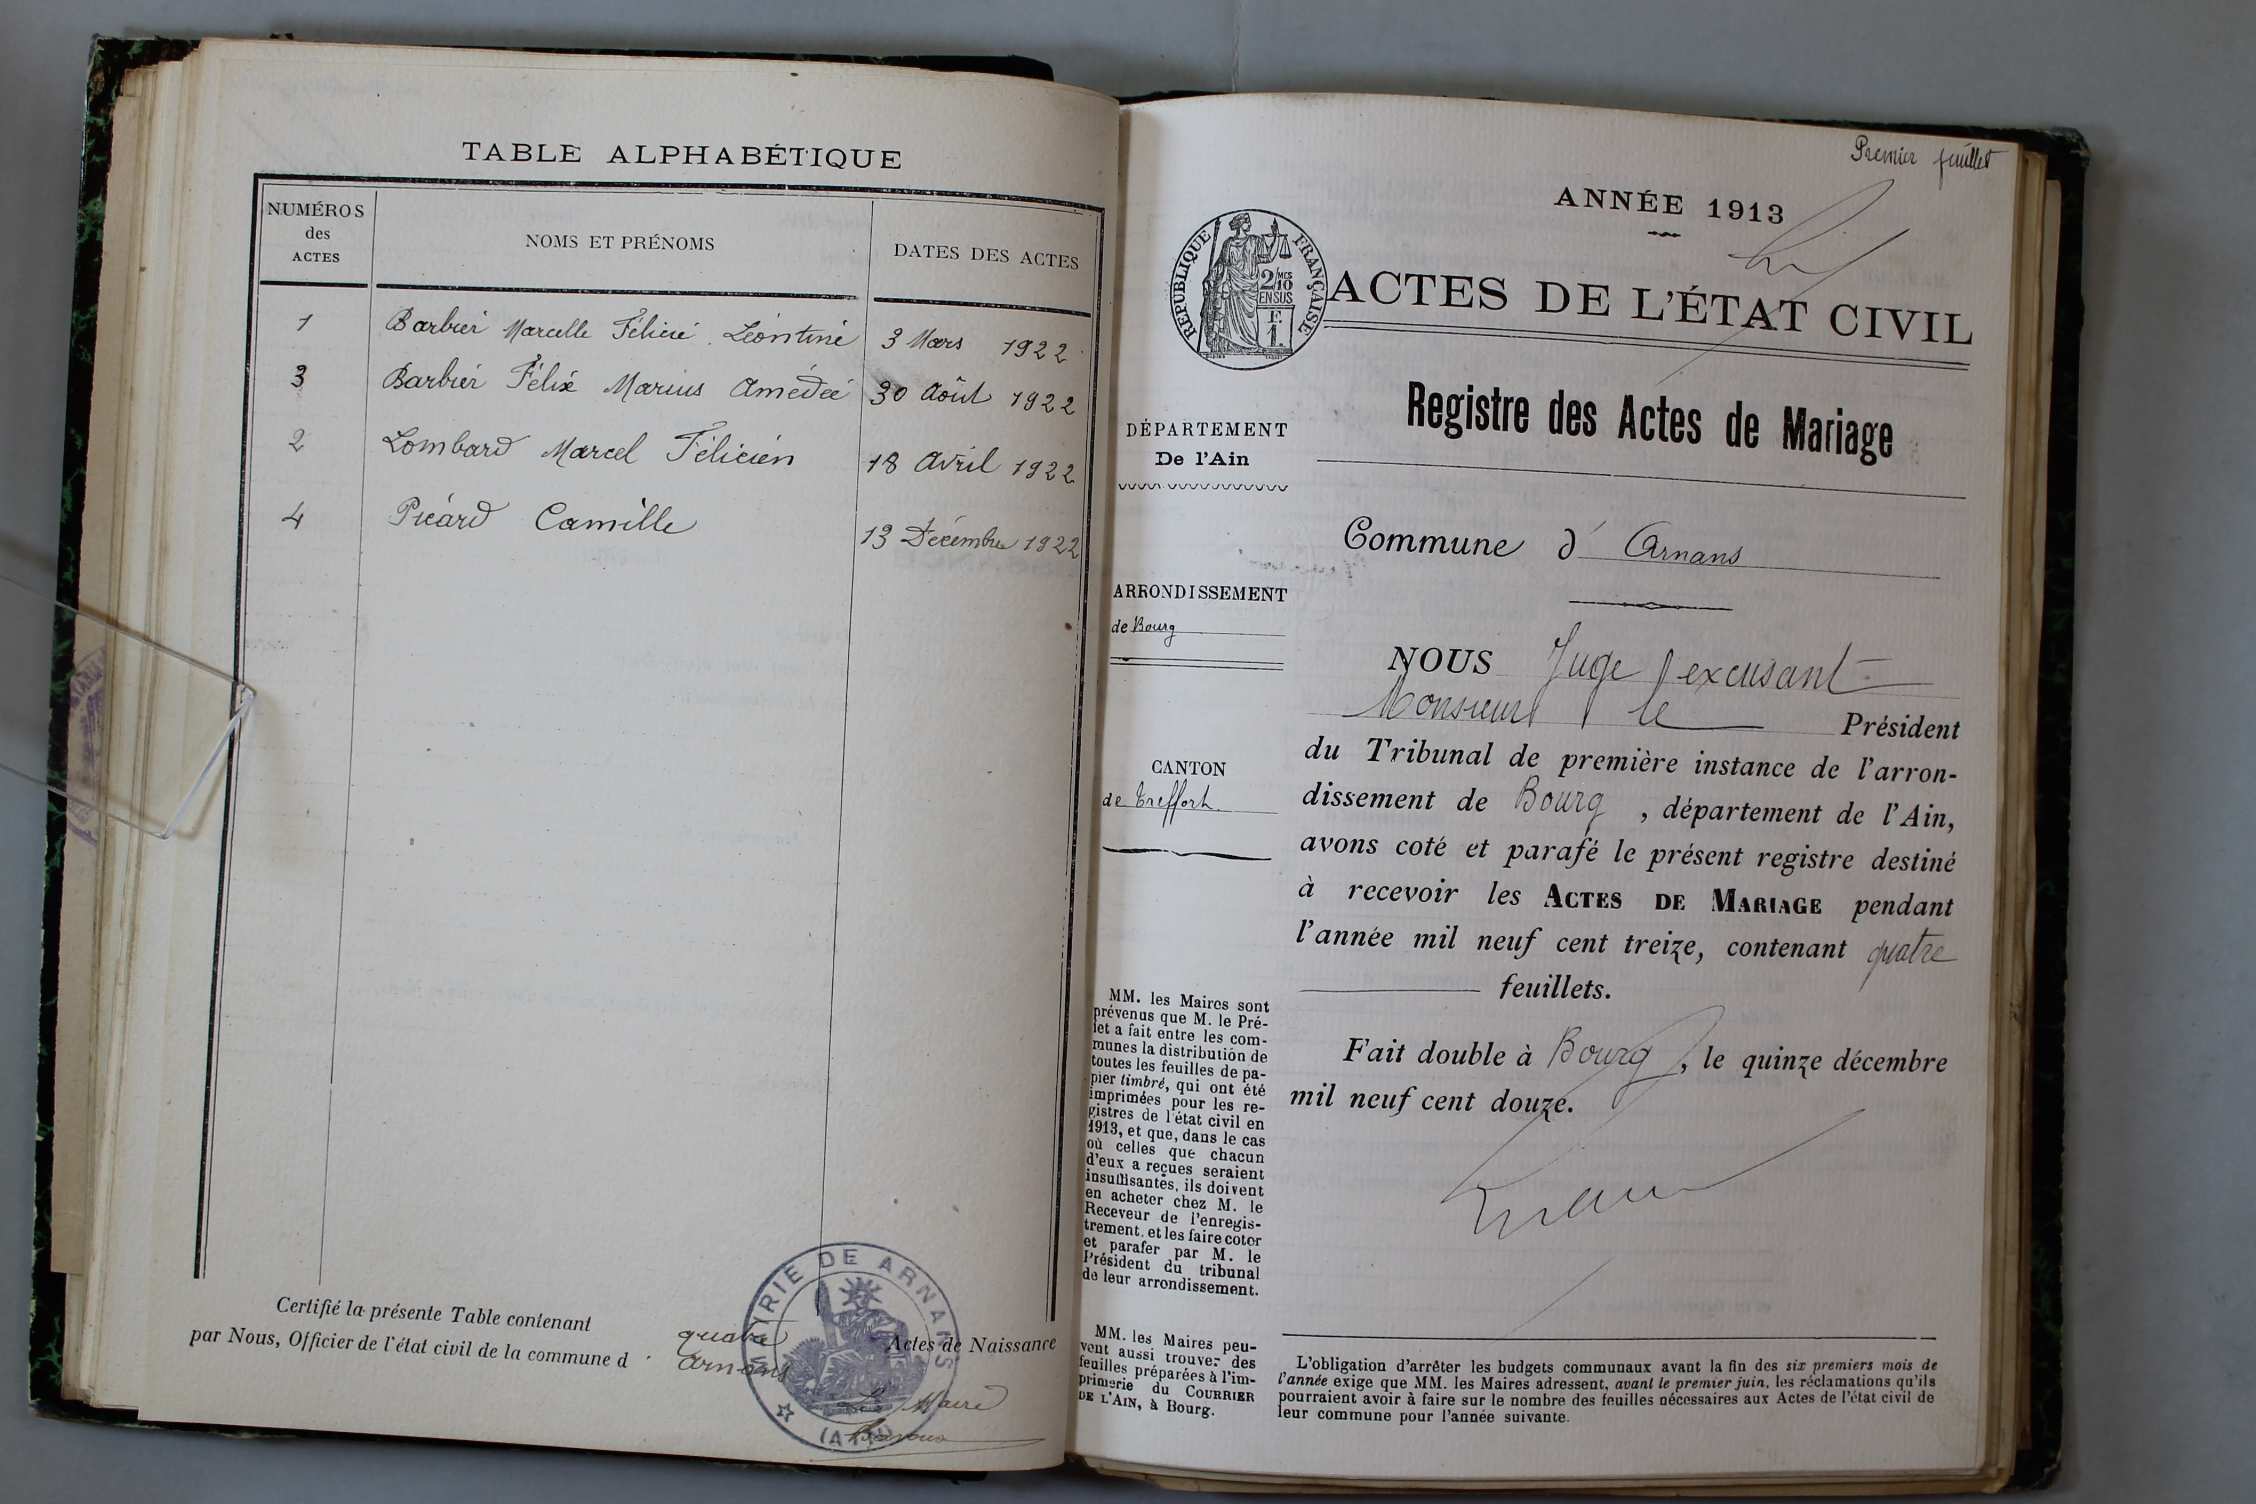 TABLE ALPHABÉTIQUE
NUMÉROS
des
ACTES
NOMS ET PRÉNOMS
DATES DES ACTES
1 Barbier Marcelle Félicie Léontine 3 Mars 1922
3 Barbier Félix Marius Amédée 30 Août 1922
2 Lombard Marcel Félicien 18 Avril 1922
4 Picard Camille 13 Décembre 1922
Certifié la présente Table contenant quatre Actes de Naissance
par Nous, Officier de l'état civil de la commune d Arnans
Le Maire
MAIRIE DE ARNANS
(AIN)
Premier feuillet
ANNÉE 1913
RÉPUBLIQUE FRANÇAISE
2/10 MES
EN SUS
F.
1.
ACTES DE L'ÉTAT CIVIL
Registre des Actes de Mariage
DÉPARTEMENT
De l'Ain
Commune d' Arnans
ARRONDISSEMENT
de Bourg
CANTON
de Treffort
NOUS Juge excusant
Monsieur le Président
du Tribunal de première instance de l'arron-
dissement de Bourg, département de l'Ain,
avons coté et parafé le présent registre destiné
à recevoir les ACTES DE MARIAGE pendant
l'année mil neuf cent treize, contenant quatre
feuillets.
Fait double à Bourg, le quinze décembre
mil neuf cent douze.
MM. les Maires sont
prévenus que M. le Pré-
fet a fait entre les com-
munes la distribution de
toutes les feuilles de pa-
pier timbré, qui ont été
imprimées pour les re-
gistres de l'état civil en
1913, et que, dans le cas
où celles que chacun
d'eux a reçues seraient
insuffisantes, ils doivent
en acheter chez M. le
Receveur de l'enregis-
trement et les faire coter
et parafer par M. le
Président du tribunal
de leur arrondissement.
MM. les Maires peu-
vent aussi trouver des
feuilles préparées à l'im-
primerie du COURRIER
DE L'AIN, à Bourg.
L'obligation d'arrêter les budgets communaux avant la fin des six premiers mois de
l'année exige que MM. les Maires adressent, avant le premier juin, les réclamations qu'ils
pourraient avoir à faire sur le nombre des feuilles nécessaires aux Actes de l'état civil de
leur commune pour l'année suivante.